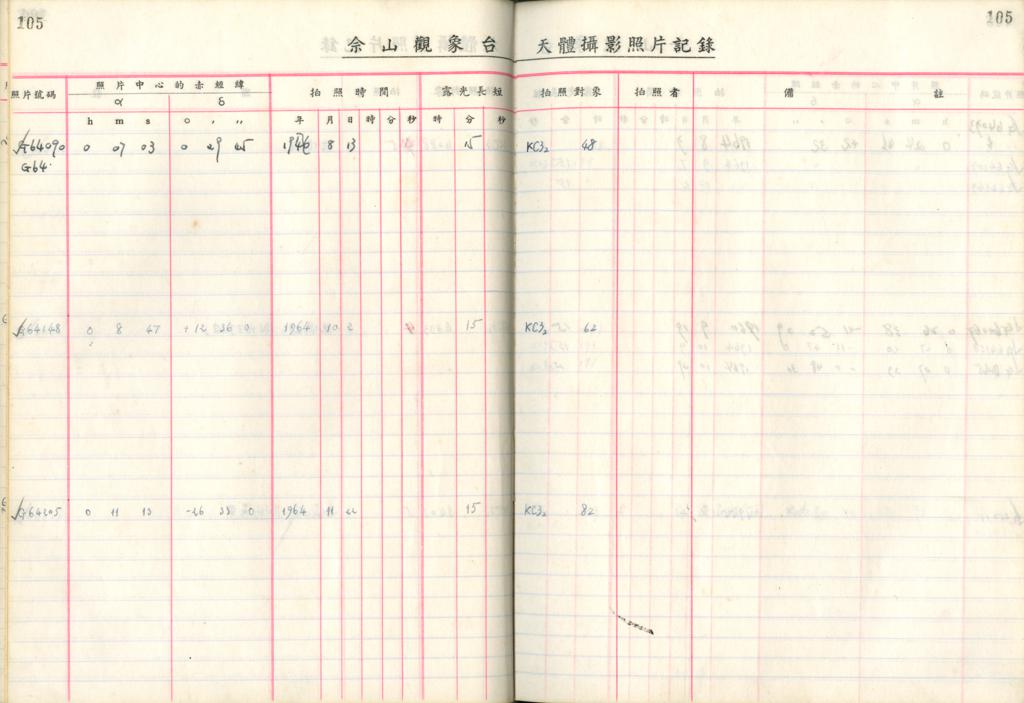 105
105
佘山觀象台 天體攝影照片記錄
照片號碼 照片中心的赤經緯 拍照時間 露光長短 拍照對象 拍照者 備註
α δ
h m s ° ′ ″ 年 月 日 時 分 秒 時 分 秒
G64090 0 07 03 0 29 25 8 13 15 KC32 48
G64
G64148 0 8 47 +12 36 0 1964 10 2 15 KC32 62
G64205 0 11 13 -26 33 0 1964 11 22 15 KC32 82